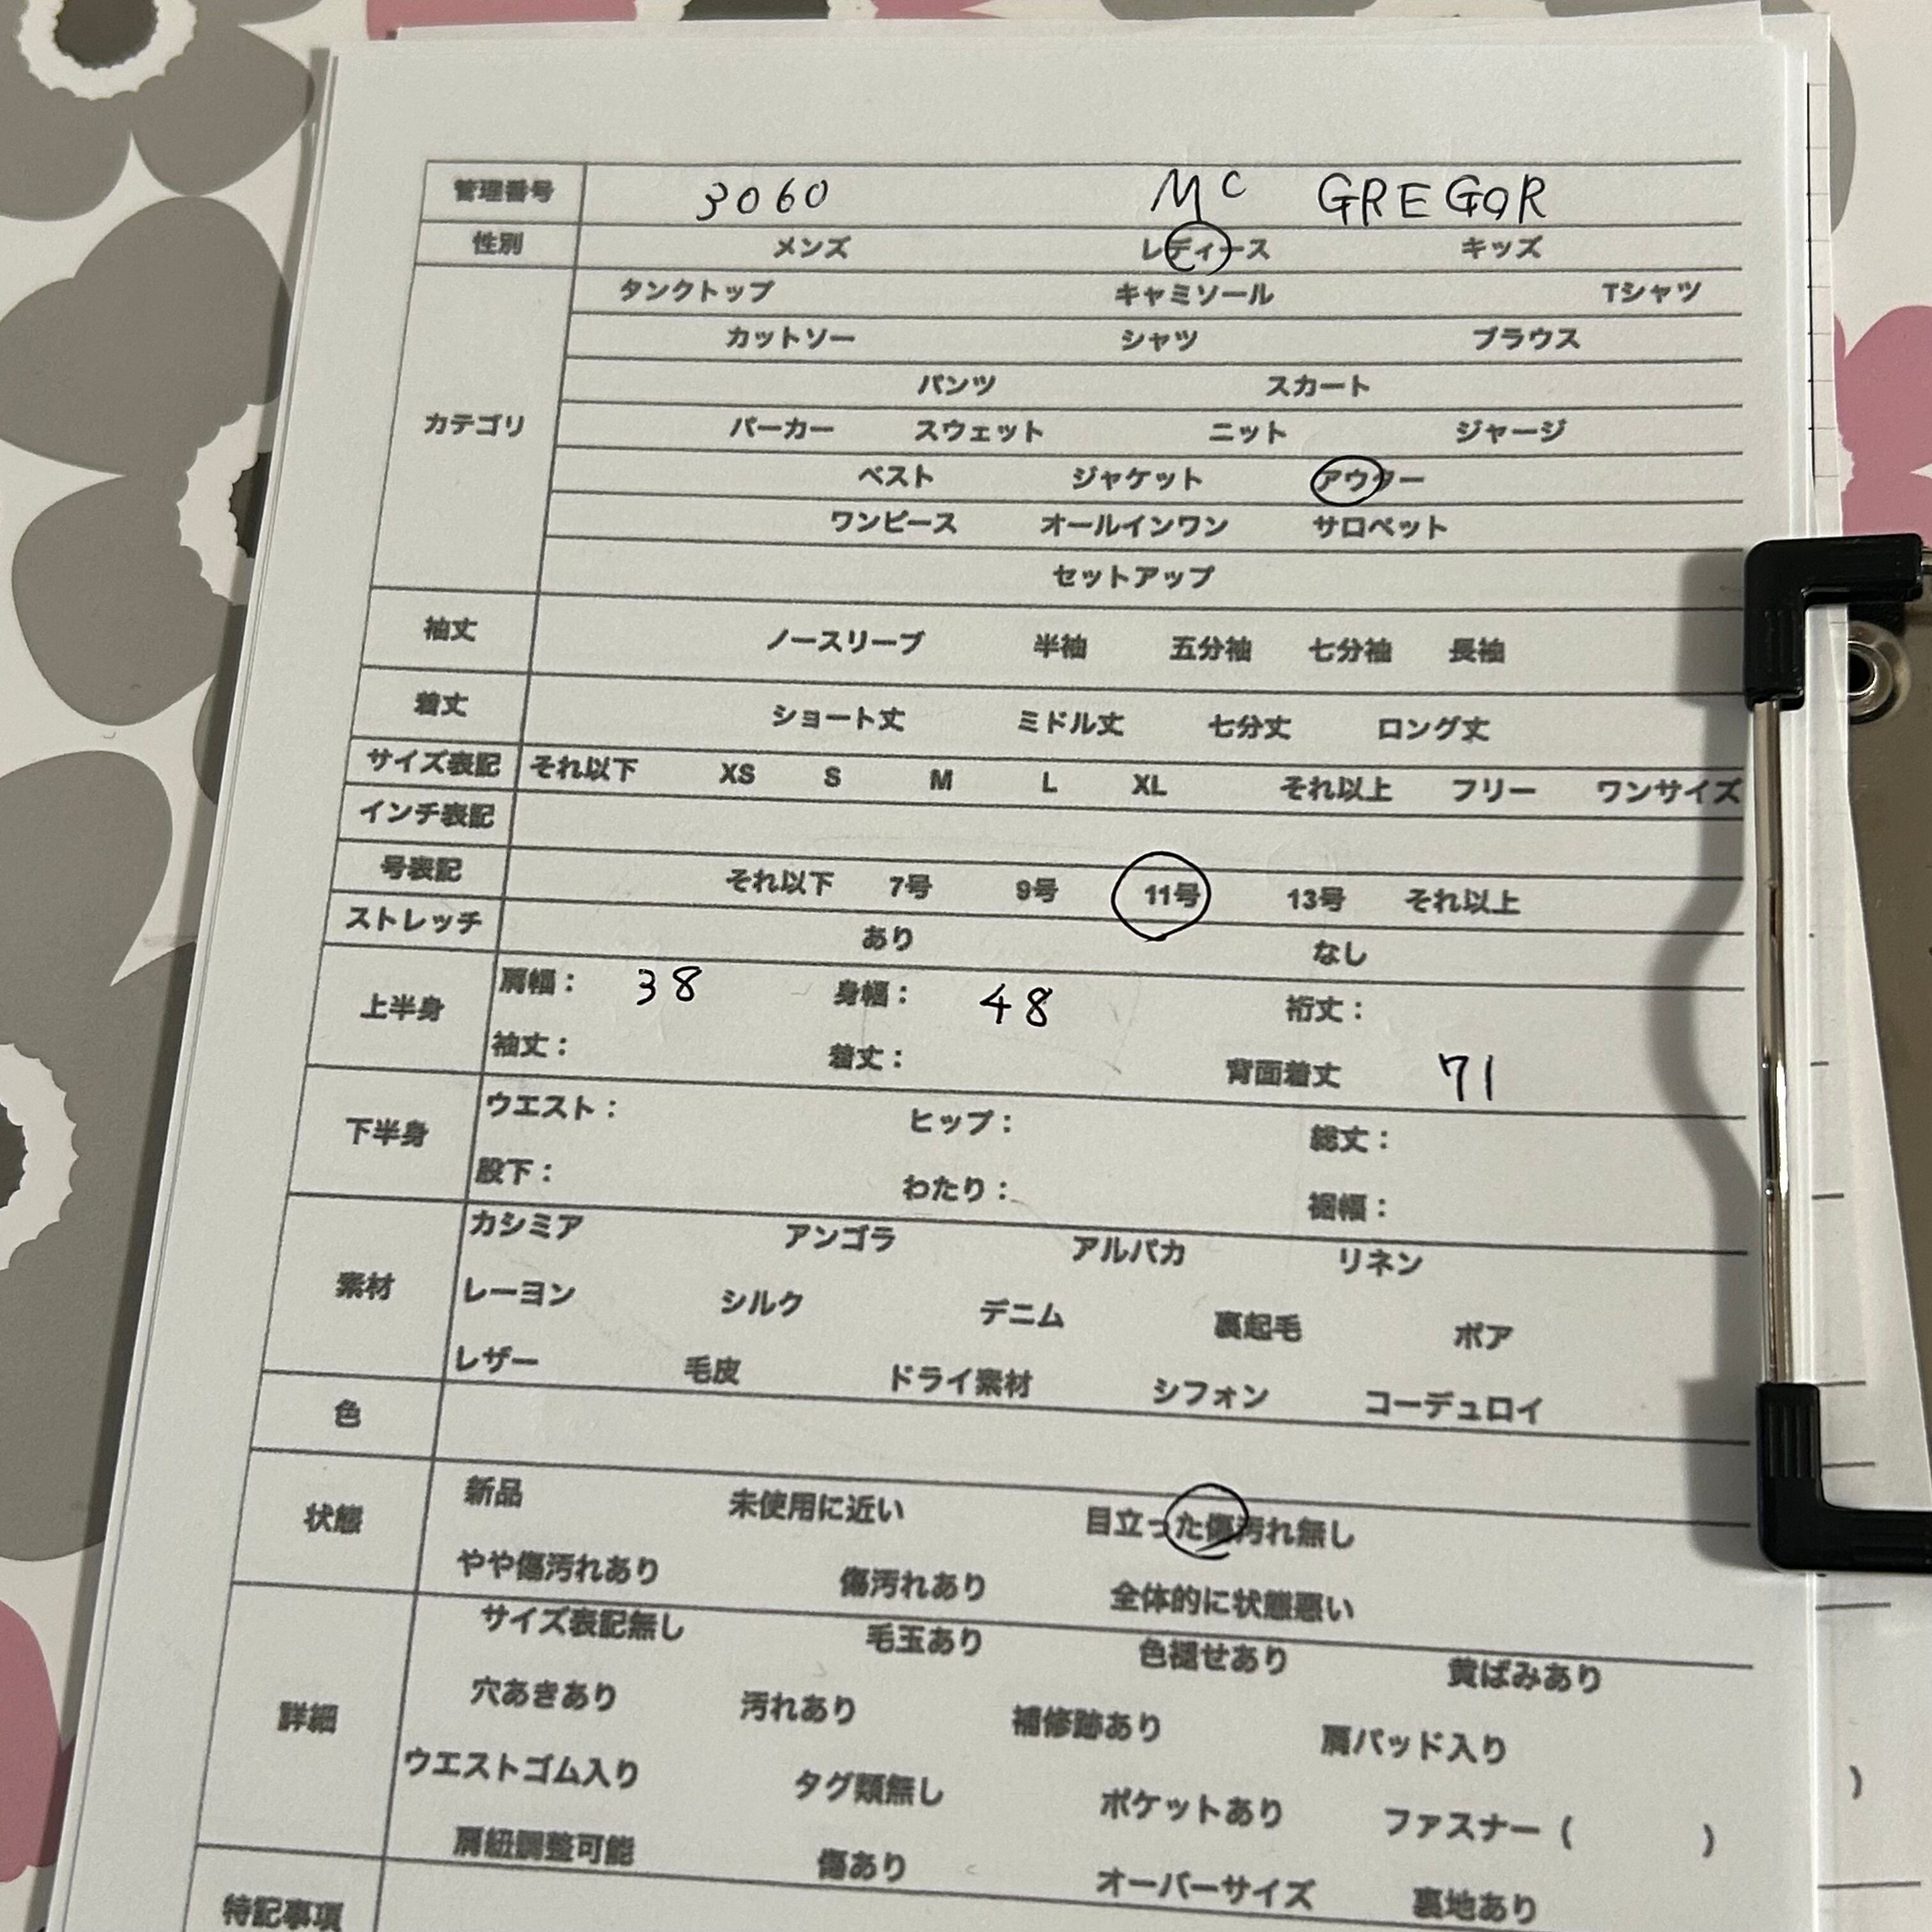 管理番号 3060 Mc GREGOR
性別 メンズ レディース キッズ
タンクトップ キャミソール Tシャツ
カットソー シャツ ブラウス
パンツ スカート
カテゴリ パーカー スウェット ニット ジャージ
ベスト ジャケット アウター
ワンピース オールインワン サロペット
セットアップ
袖丈 ノースリーブ 半袖 五分袖 七分袖 長袖
着丈 ショート丈 ミドル丈 七分丈 ロング丈
サイズ表記 それ以下 XS S M L XL それ以上 フリー ワンサイズ
インチ表記
号表記 それ以下 7号 9号 11号 13号 それ以上
ストレッチ あり なし
上半身 肩幅： 38 身幅： 48 裄丈：
袖丈： 着丈： 背面着丈 71
下半身 ウエスト： ヒップ： 総丈：
股下： わたり： 裾幅：
素材 カシミア アンゴラ アルパカ リネン
レーヨン シルク デニム 裏起毛 ボア
レザー 毛皮 ドライ素材 シフォン コーデュロイ
色
状態 新品 未使用に近い 目立った傷汚れ無し
やや傷汚れあり 傷汚れあり 全体的に状態悪い
詳細 サイズ表記無し 毛玉あり 色褪せあり 黄ばみあり
穴あきあり 汚れあり 補修跡あり 肩パッド入り
ウエストゴム入り タグ類無し ポケットあり ファスナー（ ）
肩紐調整可能 傷あり オーバーサイズ 裏地あり
特記事項